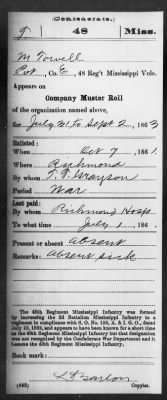 (Confederate.)
T 48 Miss.
M Towell
Pvt, Co. E, 48 Reg't Mississippi Vols.
Appears on
Company Muster Roll
of the organization named above,
for July 1 to Sept 2, 1863
Enlisted:
When Oct 7, 1861.
Where Richmond
By whom T. R. Grayson
Period War
Last paid:
By whom Richmond Hosp.
To what time July 1, 186 .
Present or absent absent
Remarks: absent sick
The 48th Regiment Mississippi Infantry was formed by
increasing the 2d Battalion Mississippi Infantry to a
regiment in compliance with S. O. No.
as the 48th Regiment Mississippi Infantry but that designation
was not recognized by the Confederate War Department and it
became the 48th Regiment Mississippi Infantry.
Book mark:
(642) Copyist.